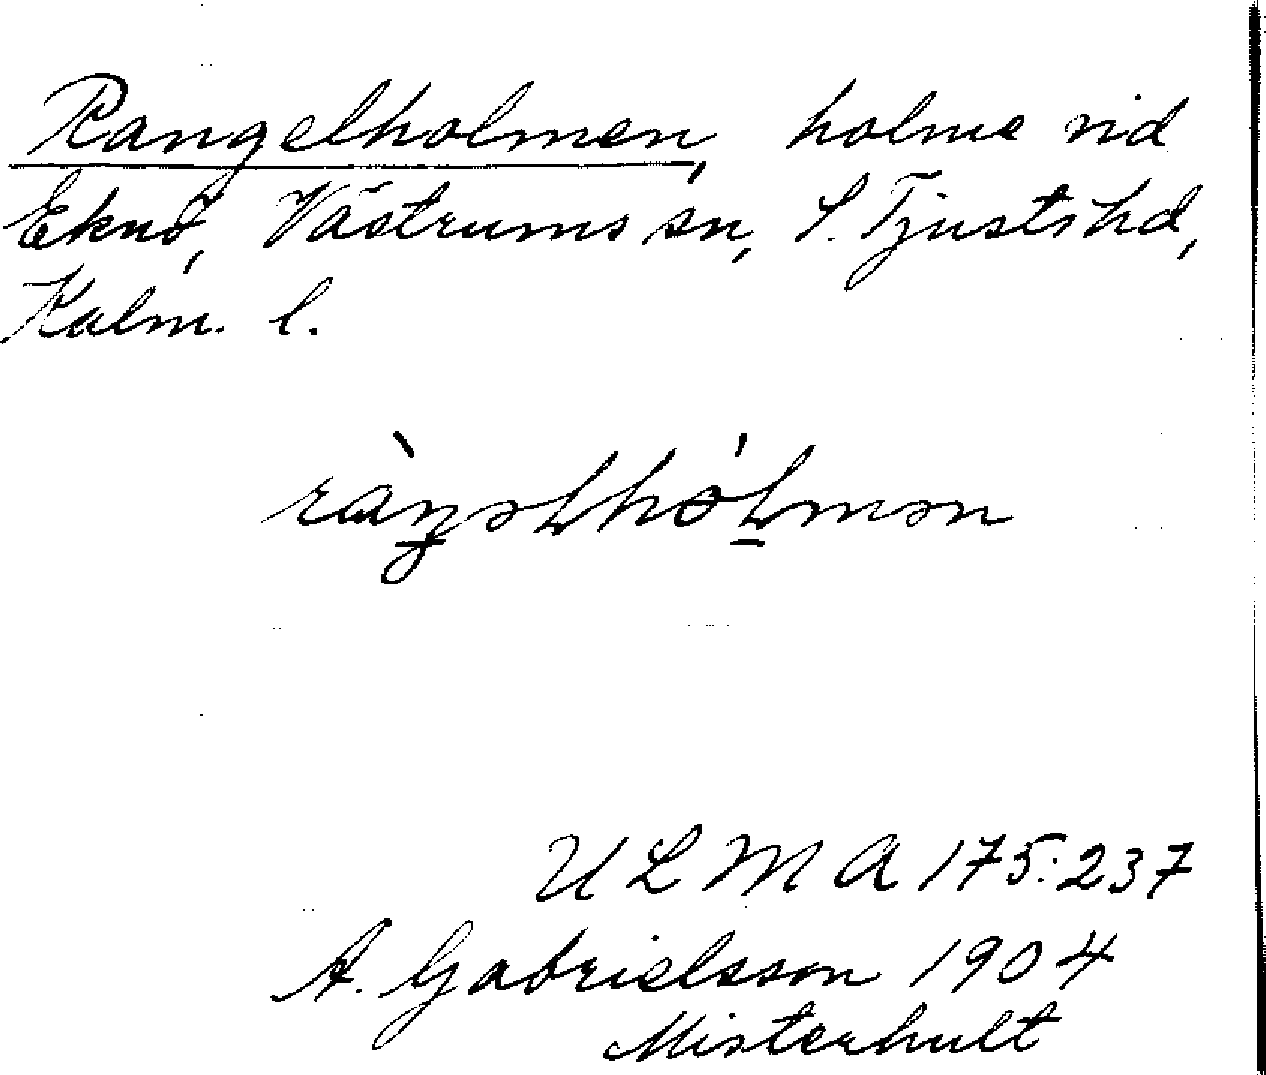 Rangelholmen, holme vid
Eknö, Västrums sn, S. Tjusts hd,
Kalm. l.
ràŋəlhólmən
U L M A 175:237
A. Gabrielsson 1904
Misterhult